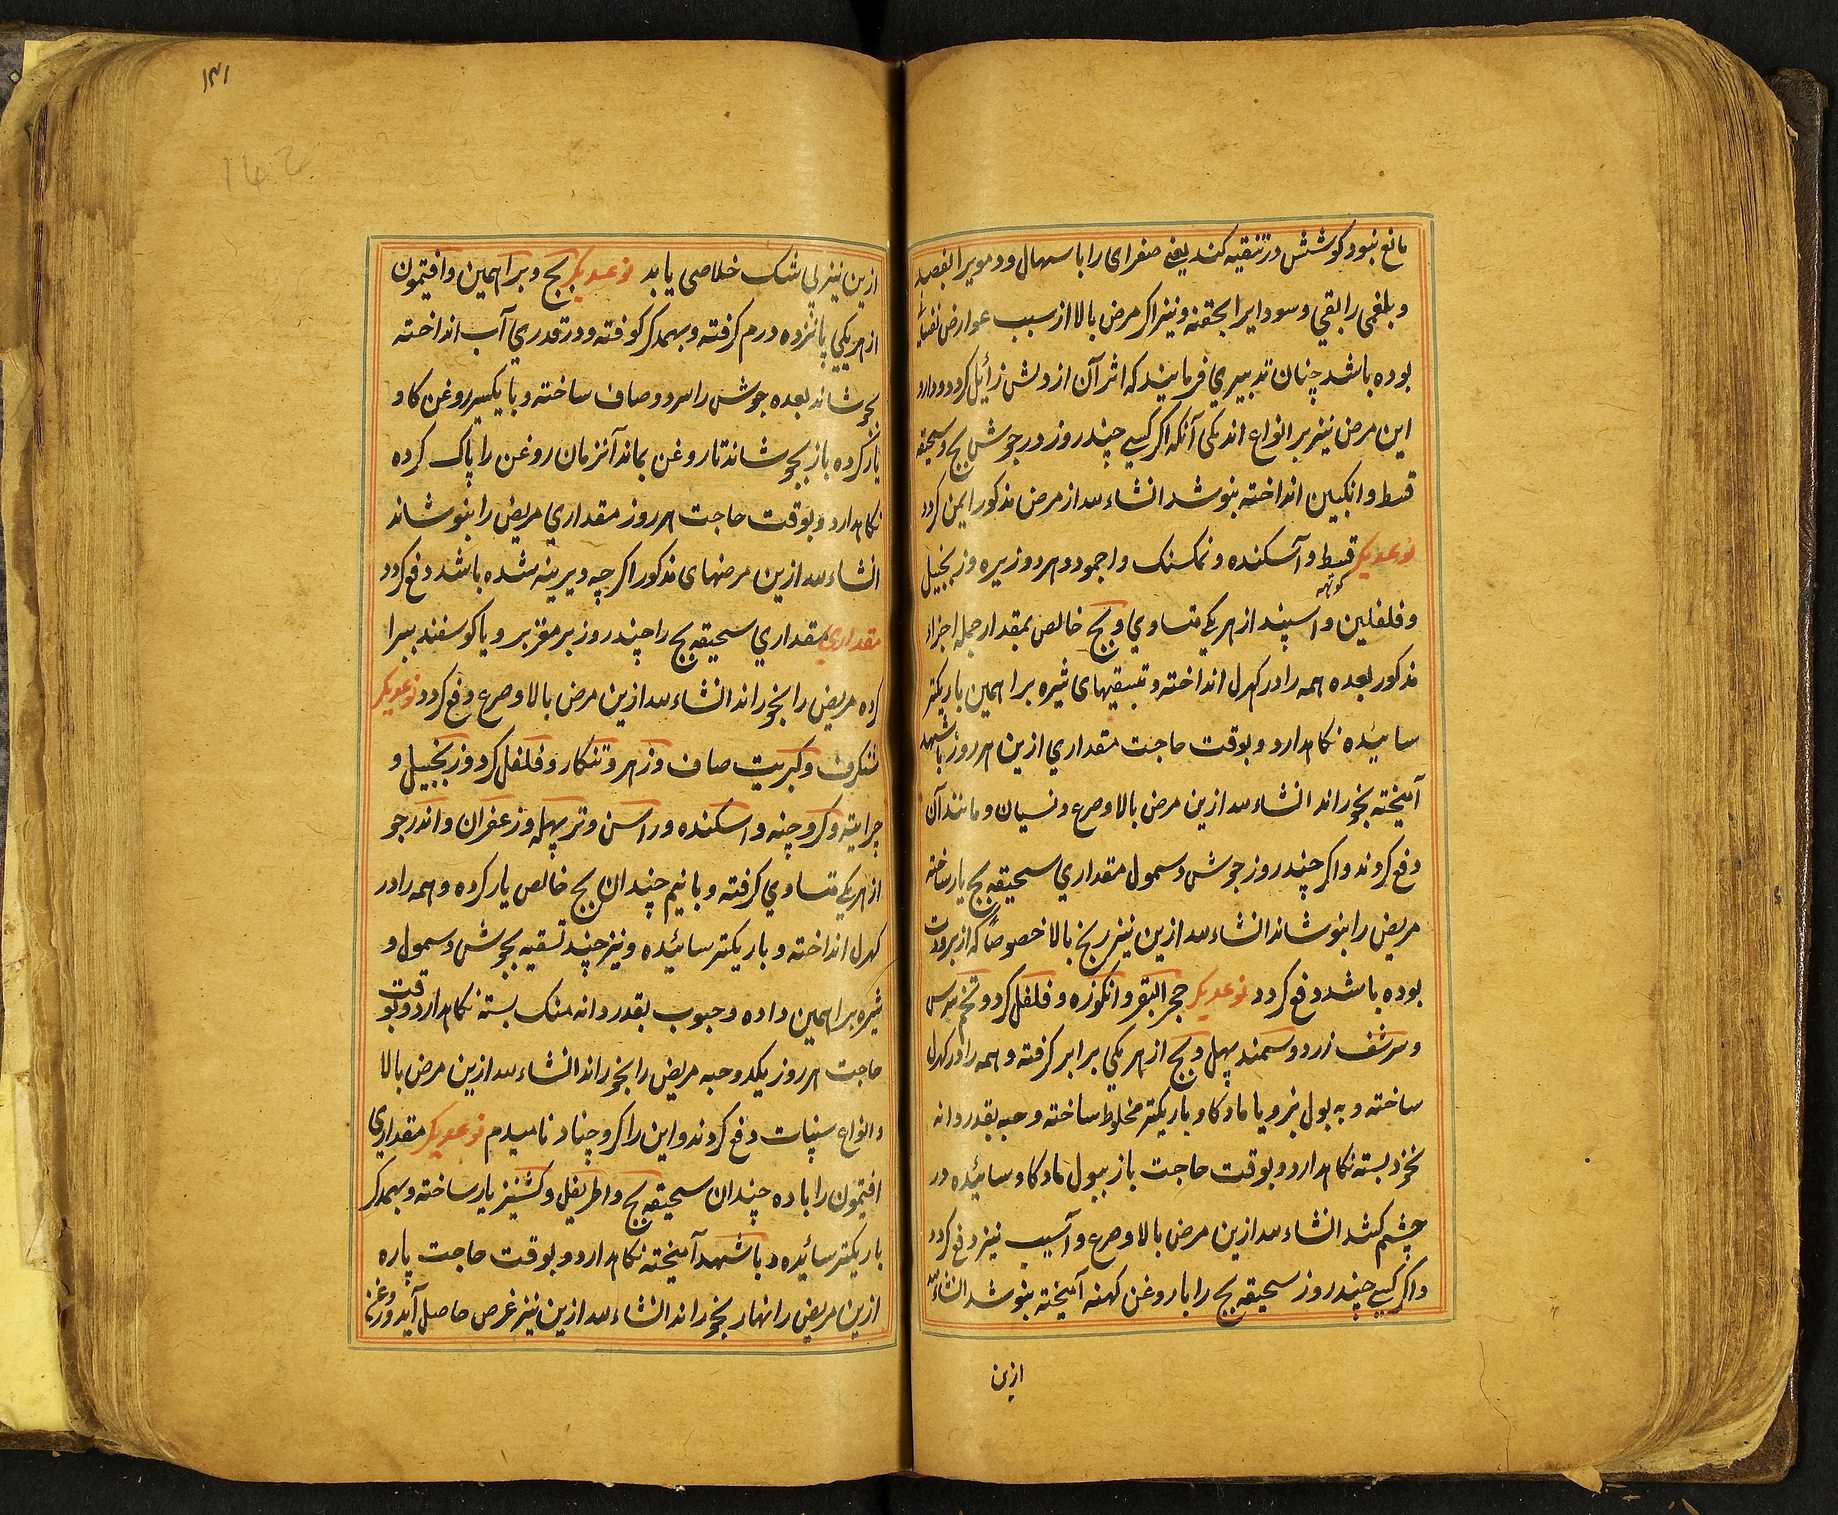 مانع نبود کوشش در تنقیه کند یعنی صفرای را با سهال و دمویرا بفصد
و بلغمی را بقی و سودایرا بحقنه و نیز اکر مرض بالا از سبب عوارض نفسانی
بوده باشد چنان تدبیری فرمایند که اثر آن از دلش زائیل کردد و دارو
این مرض نیز بر انواع اند یکی آنکه اکر کسی چند روز در جوش بچ و سحیقه
قسط و انکبین انداخته بنوشد انشاء لله از مرض مذکور ایمن کردد
نوعدیکر قسط و آسکنده و نمکسنک و اجمود و هر دو زیره و زنجبیل
و فلفلین و اسپند از هر یکی متساوی و بچ خالص بمقدار جمله اجزاء
مذکور بعده همه را در کهرل انداخته و تسقیهای شیره براهمین باریکتر
سائیده نکاهدارد و بوقت حاجت مقداری ازین هر روز با شهد
آمیخته بخوراند انشاء لله ازین مرض بالا و صرع و نسیان و مانند آن
دفع کردند و اکر چند روز جوش دسمول مقداری سحیقه بچ یار ساخته
مریض را بنوشاند انشاء لله ازین نیز رنج بالا خصوصاً که از برودت
بوده باشد دفع کردد نوعدیکر حجر البقر و انکوزه و فلفل کرد و تخم سرس
و سرشف زرد و سمندپهل و بچ از هر یکی برابر کرفته و همه را در کهرل
ساخته و به بول بز و یا ماد کاو باریکتر مخلوط ساخته و حبه بقدر دانه
نخود بسته نکاهدارد و بوقت حاجت باز ببول ماد کاو سائیده در
چشم کشد انشاء لله ازین مرض بالا و صرع و آسیب نیز دفع کردد
و اکر کسی چند روز سحیقه بچ را با روغن کهنه آمیخته بنوشد انشاء لله
ازین
۱۳۱
ازین نیز بی شک خلاصی یابد نوعدیکر بچ و براهمین و افیتمون
از هر یکی پانزده درم کرفته و بهمدکر کوفته و در قدری آب انداخته
بجوشاند بعده جوش را سرد و صاف ساخته و با یکسیر روغن کاو
یار کرده باز بجوشاند تا روغن بماند آنزمان روغن را پاک کرده
نکاهدارد و بوقت حاجت هر روز مقداری مریض را بنوشاند
انشاء لله ازین مرضهای مذکور اکرچه دیرینه شده باشد دفع کردد
مقداری مقداری سحیقه بچ را چند روز بر مغز بر و یا کوسفند ببرا
کرده مریض را بخوراند انشاء لله ازین مرض بالا و صرع دفع کردد نوعدیکر
شنکرف و کبریت صاف و زهر و تنکار و فلفل کرد و زنجبیل و
چرایته و کروچنه و اسکنده و راسن و ترپهله و زعفران و اندرجو
از هر یکی متساوی کرفته و با نیم چندان بچ خالص یار کرده و همه را در
کهرل انداخته و باریکتر سائیده و نیز چند تسقیه بجوش دسمول و
شیره براهمین داده و حبوب بقدر دانه منک بسته نکاهدارد و بوقت
حاجت هر روز یکدو حبه مریض را بخوراند انشاء لله ازین مرض بالا
و انواع سنپات دفع کردند و این را کروچناد نامیدم نوعدیکر مقداری
افیتمون را با ده چندان سحیقه بچ و اطریفل و کشنیز یار ساخته و بهمدکر
باریکتر سائیده و با شهد آمیخته نکاهدارد و بوقت حاجت پاره
ازین مریض را نهار بخوراند انشاء لله ازین نیز غرض حاصل آید